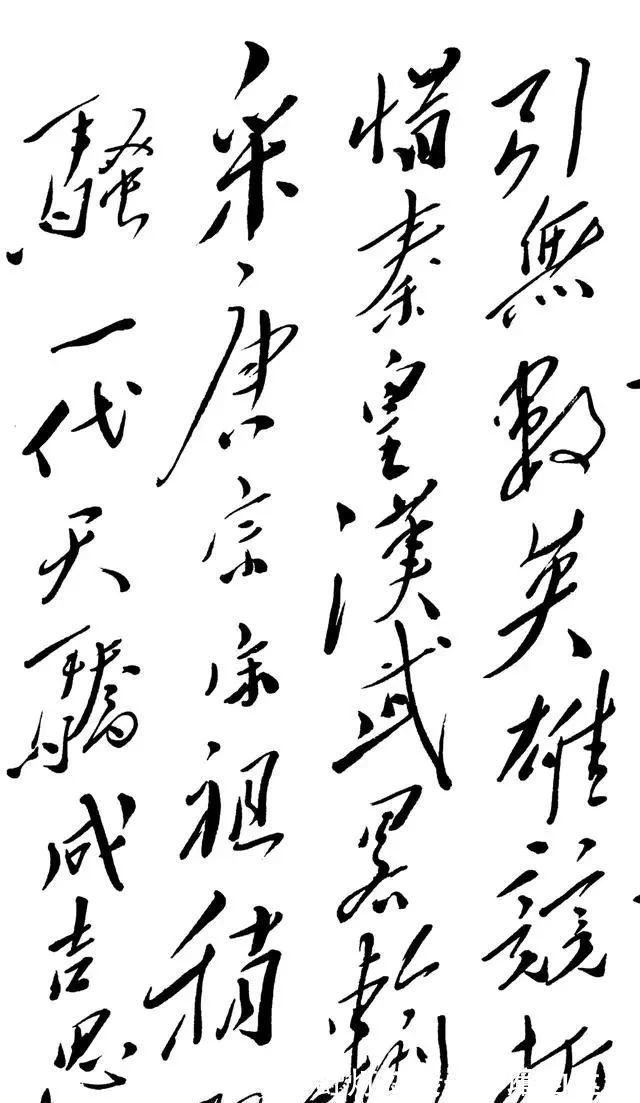 引無數英雄競折
惜秦皇漢武畧輸
采唐宗宋祖稍
騷一代天驕成吉思